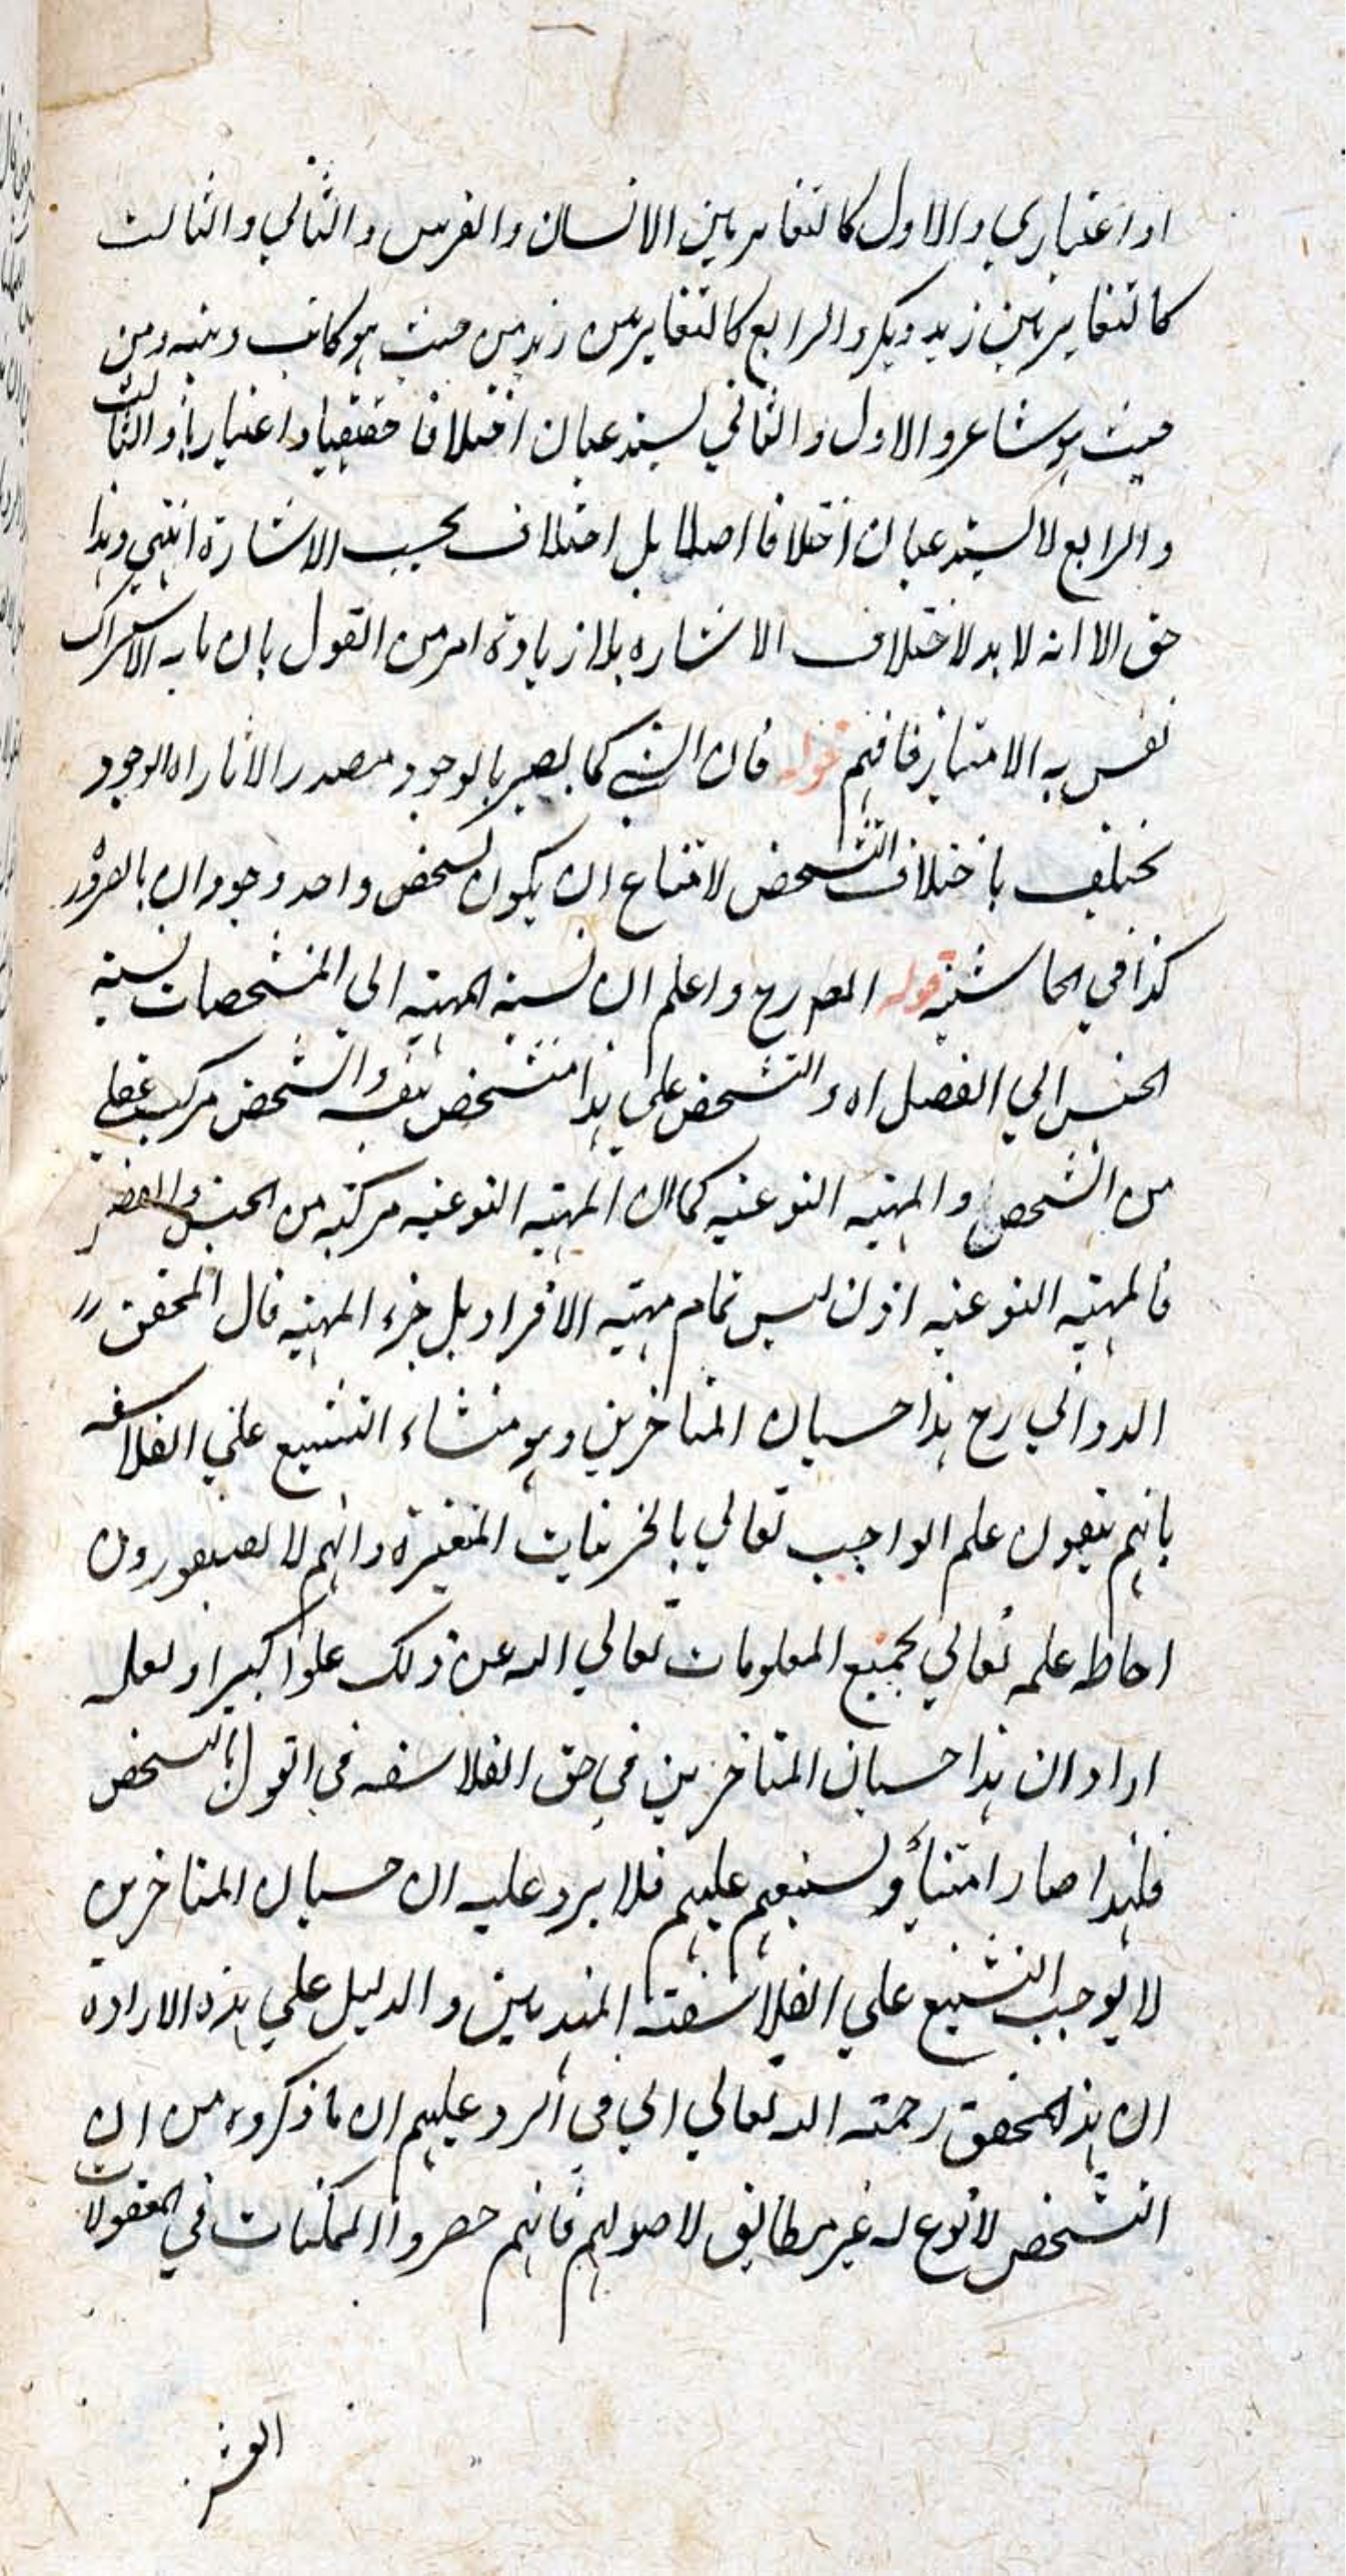 او اعتباري والاول كالتغاير بين الانسان والفرس والثاني والثالث
كالتغاير بين زيد وبكر والرابع كالتغاير بين زيد من حيث هو كاتب وبينه ومن
حيث هو شاعر والاول والثاني يستدعيان اختلافا حقيقيا او اعتباريا والثالث
والرابع لا يستدعيان اختلافا اصلا بل اختلاف بحسب الاشارة انتهي وهذا
حق الا انه لا بد لاختلاف الاشاره بلا زيادة امر من القول بان ما به الاشتراك
نفس به الامتياز فافهم قوله فان الشي كما يصير بالوجود مصدر الاثار اه الوجود
يختلف باختلاف التشخص لامتناع ان يكون لشخص واحد وجودان بالضرورة
كذا في الحاشية قوله المصرح واعلم ان نسبة المهية الي المشخصات نسبة
الجنس الي الفصل اه والتشخص علي هذا متشخص بنفسه والشخص مركب عقلي
من التشخص والمهية النوعية كما ان المهية النوعية مركبة من الجنس والفصل
فالمهية النوعية اذن ليس تمام مهية الافراد بل جزء المهية قال المحقق
الدواني رح هذا حسبان المتاخرين وهو منشاء التشنيع علي الفلاسفه
بانهم ينفون علم الواجب تعالي بالجزئيات المتغيرة وانهم لا يتصورون
احاطه علمه تعالي بجميع المعلومات تعالي الله عن ذلك علوا كبيرا ولعله
اراد ان هذا حسبان المتاخرين في حق الفلاسفه في القول بالتشخص
فلهذا صار منشاء لتشنيعهم عليهم فلا يرد عليه ان حسبان المتاخرين
لا يوجب التشنيع علي الفلاسفة المتقدمين والدليل علي هذه الارادة
ان هذا المحقق رحمته الله تعالي اتي في الرد عليهم ان ما ذكروه من ان
التشخص لا نوع له غير مطابق لاصولهم فانهم حصروا الممكنات في المقولات
العشر